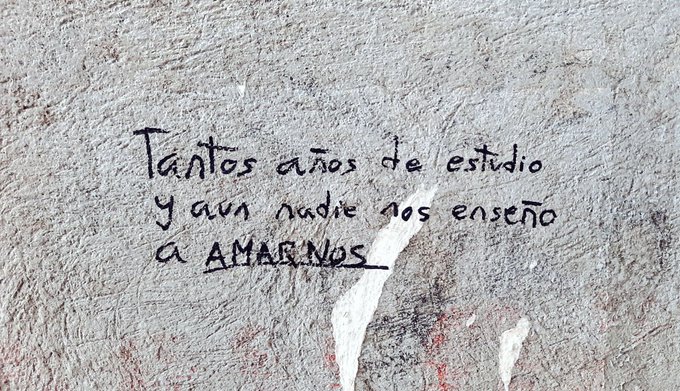 Tantos años de estudio
y aun nadie nos enseño
a AMARNOS